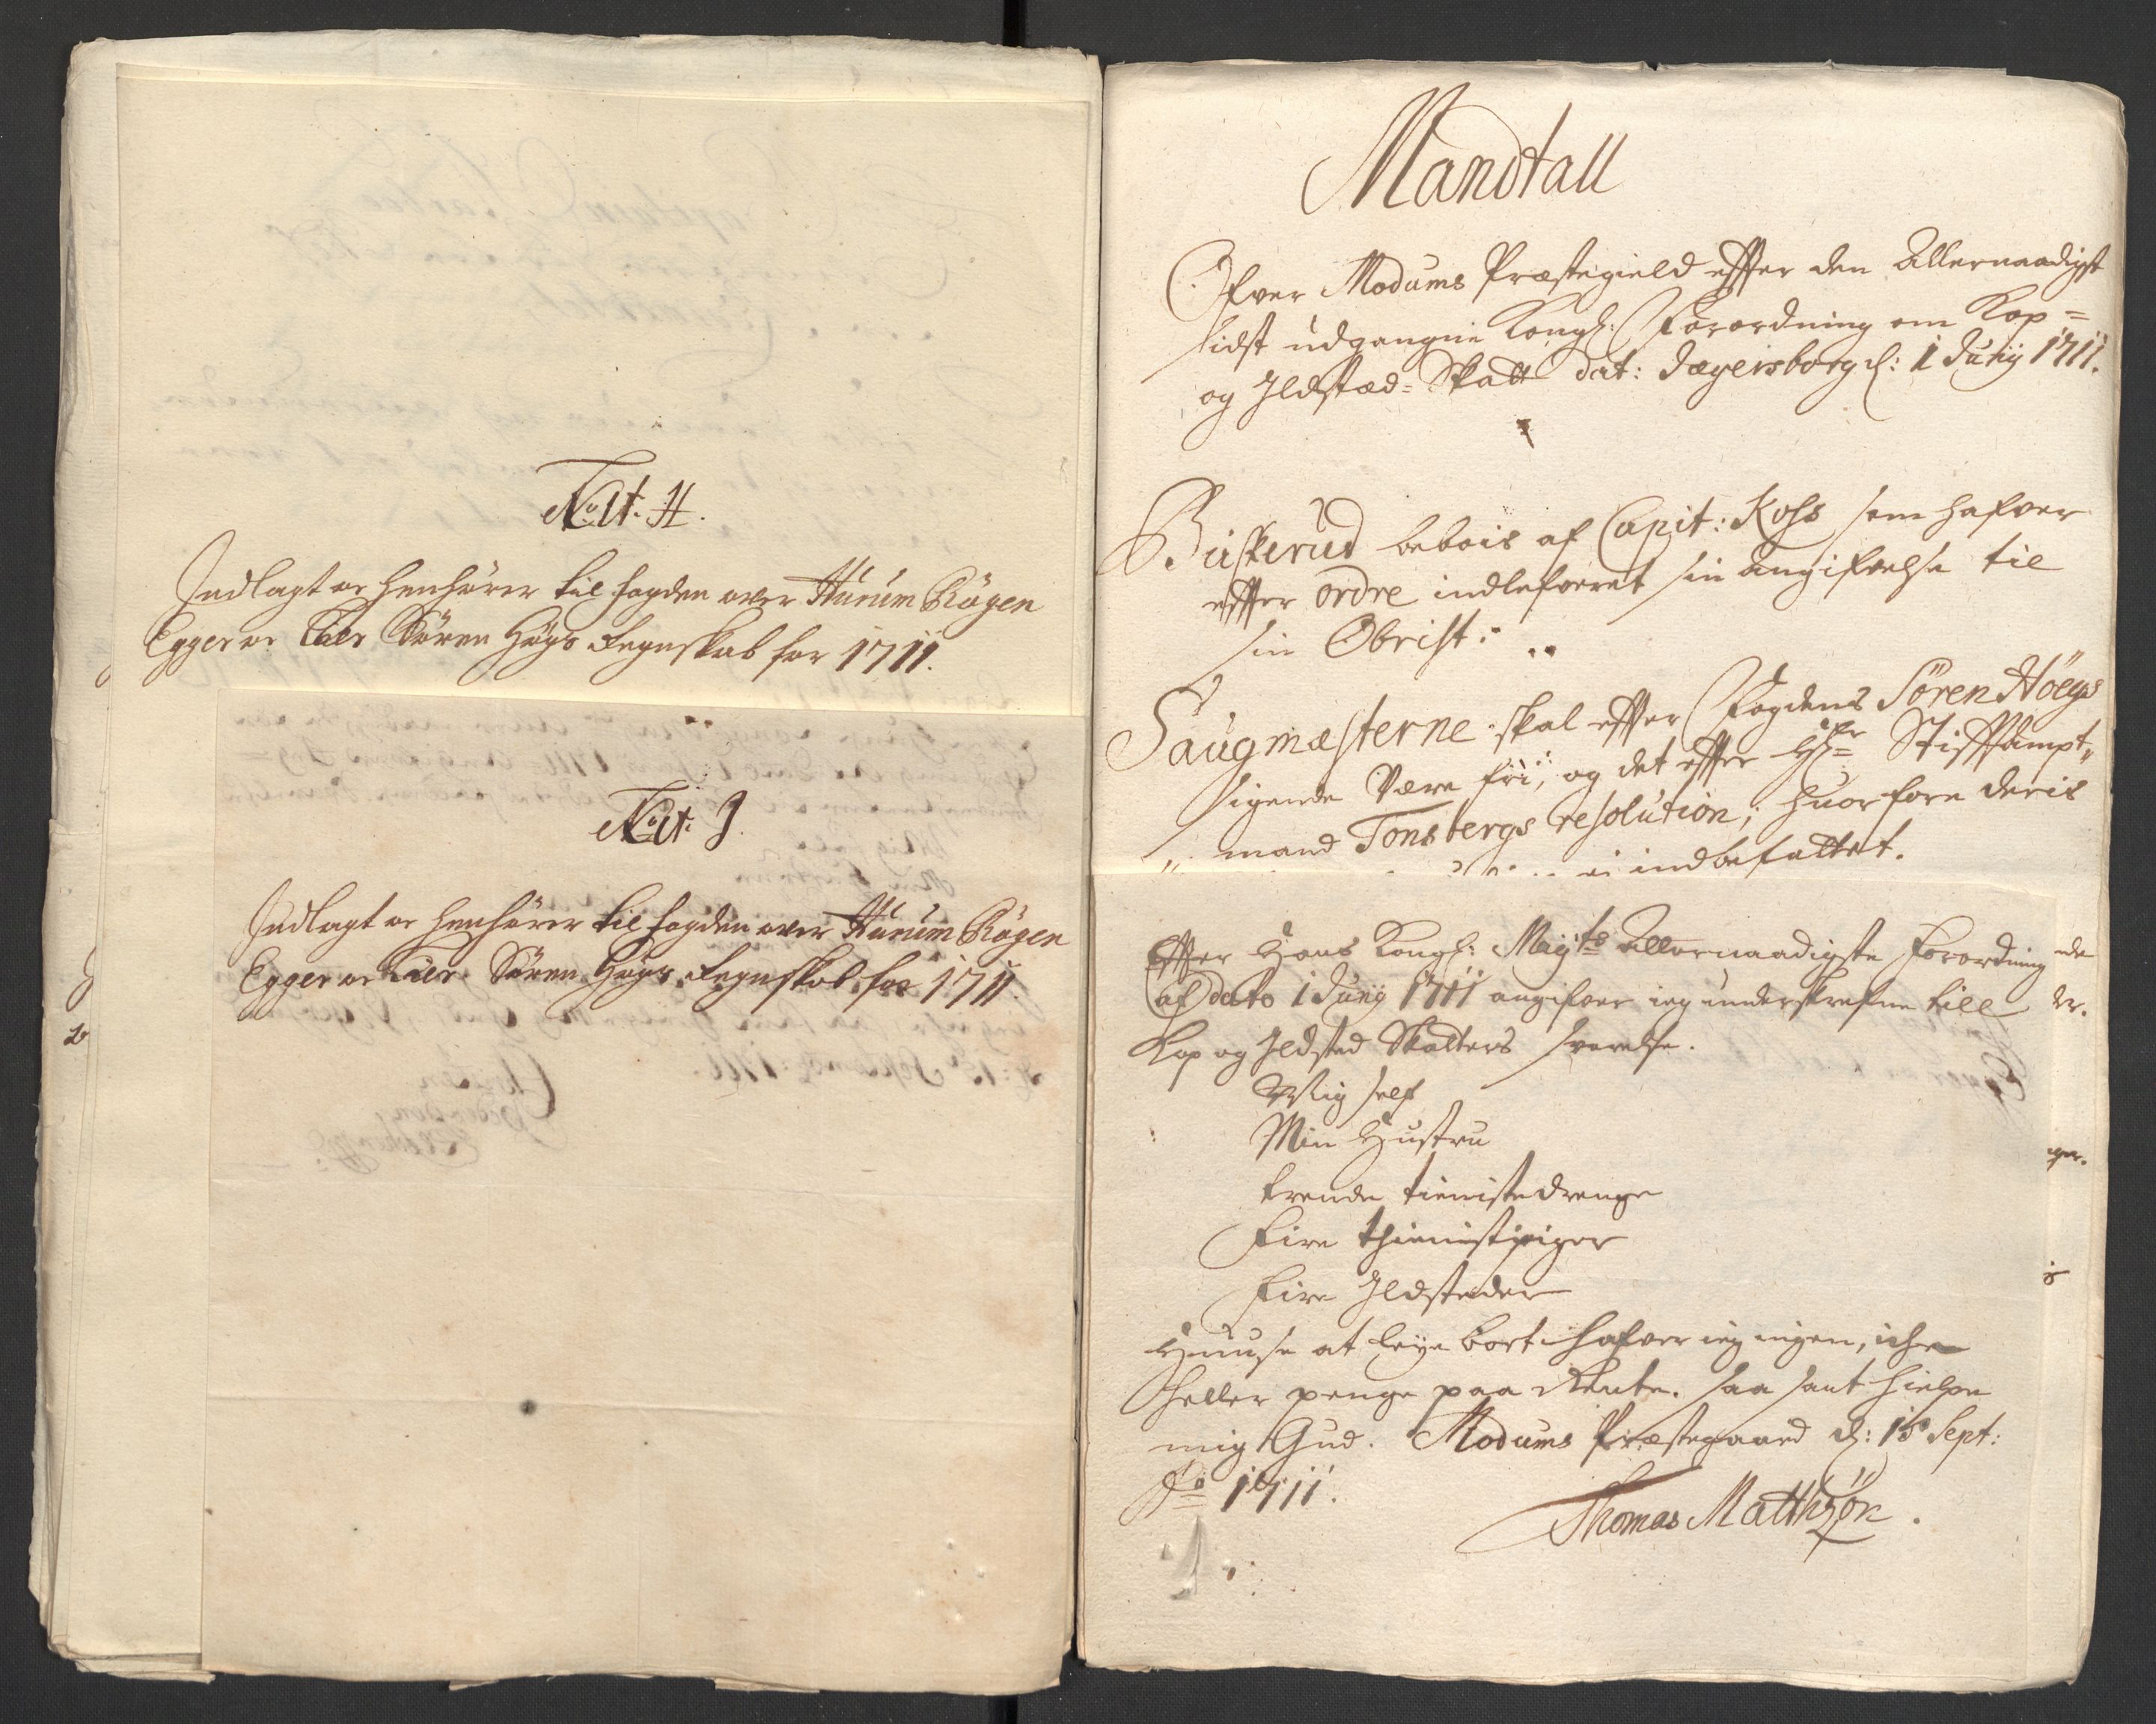 No. Lit. H.
Indlagt oc henhører til fogden over Hurum Røgen
Egger oc Lier Søren Høgs Regnskab for 1711.
No. Lit: J.
Indlagt oc henhører til fogden over Hurum Røgen
Egger oc Lier Søren Høgs Regnskab for 1711.
Mandtall
Ofver Modums Præstegield effter den Allernaadigst
sidst udgangne Kongl: Forordning om Kop=
og Ildstæd=Skatt dat: Jægersborg d: 1 Junij 1711.
Buskerud bebois af Capit: Koss som hafver
effter ordre indlefveret sin angifvelse til
sin Obrist:
Saugmæsterne skal effter Fogdens Sören Höegs
sigende Være fri, og det effter Hr Stifftampt„
„mand Tonsbergs resolution; huorfore deris
ei indbefattet.
Effter Hans Kongl: Mayts Allernaadigste Forordning
af dato 1 Junij 1711 angifver ieg underskrefne till
Kop og Ildsted Skatters svarelse.
Mig self
Min Hustru
trende tienistedrenge
Fire thienistpiger
Fire Ildsteder
Huuse at leye bort hafver ieg ingen, iche
heller penge paa Rente. saa sant hielpe
mig Gud. Modums Præstegaard d: 15 Sept:
Ao 1711.
Thomas Matthisøn.